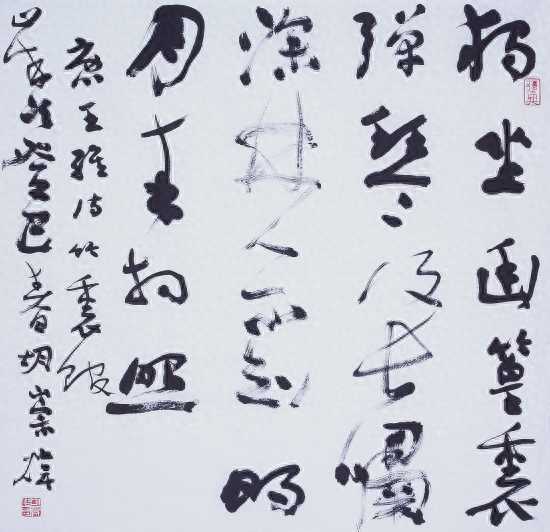 獨坐幽篁裏
彈琴復長嘯
深林人不知明
月来相照
唐王維诗竹裏館
癸巳春胡崇煒